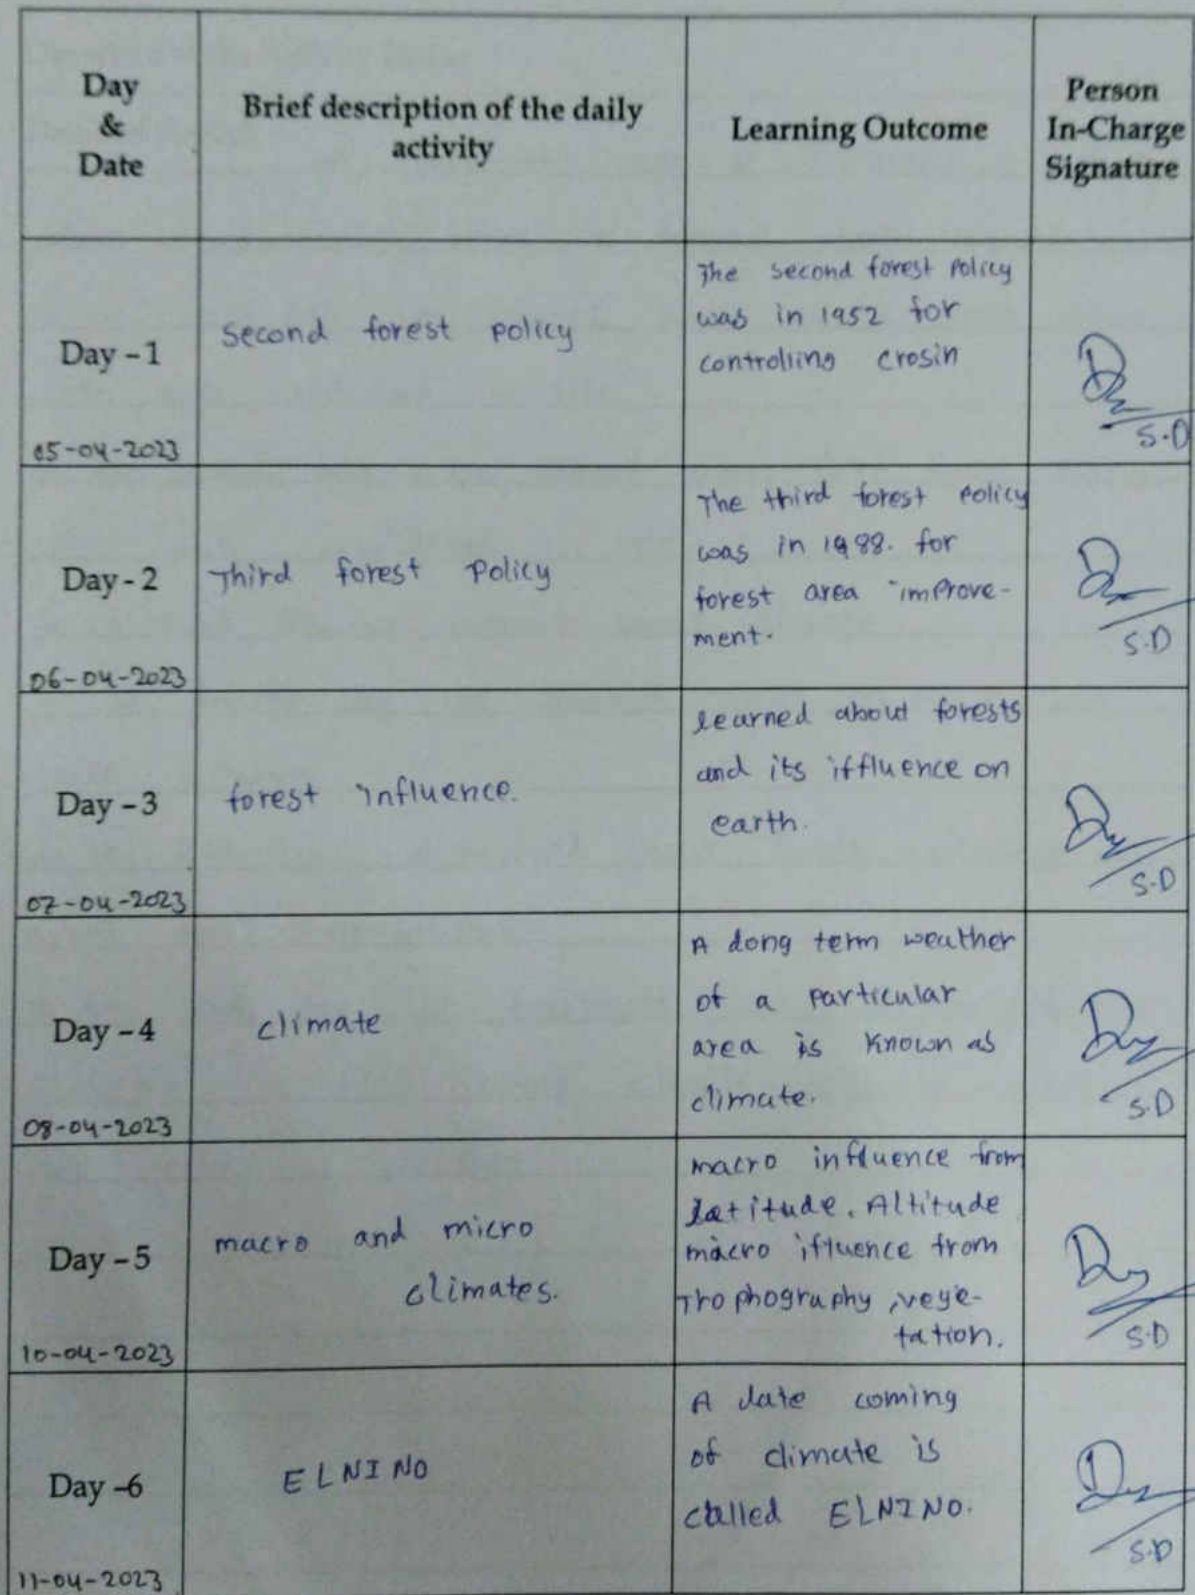 Day
&
Date
Brief description of the daily
activity
Learning Outcome
Person
In-Charge
Signature
Day - 1
05-04-2023
second forest policy
The second forest policy
was in 1952 for
controlling erosin
S.D
Day - 2
06-04-2023
Third forest policy
The third forest policy
was in 1988. for
forest area improve-
ment.
S.D
Day - 3
07-04-2023
forest influence.
learned about forests
and its iffluence on
earth.
S.D
Day - 4
08-04-2023
climate
A long term weather
of a particular
area is known as
climate.
S.D
Day - 5
10-04-2023
macro and micro
climates.
macro influence from
latitude, Altitude
macro ifluence from
Trophography, vege-
tation.
S.D
Day -6
11-04-2023
ELNINO
A late coming
of climate is
called ELNINO.
S.D